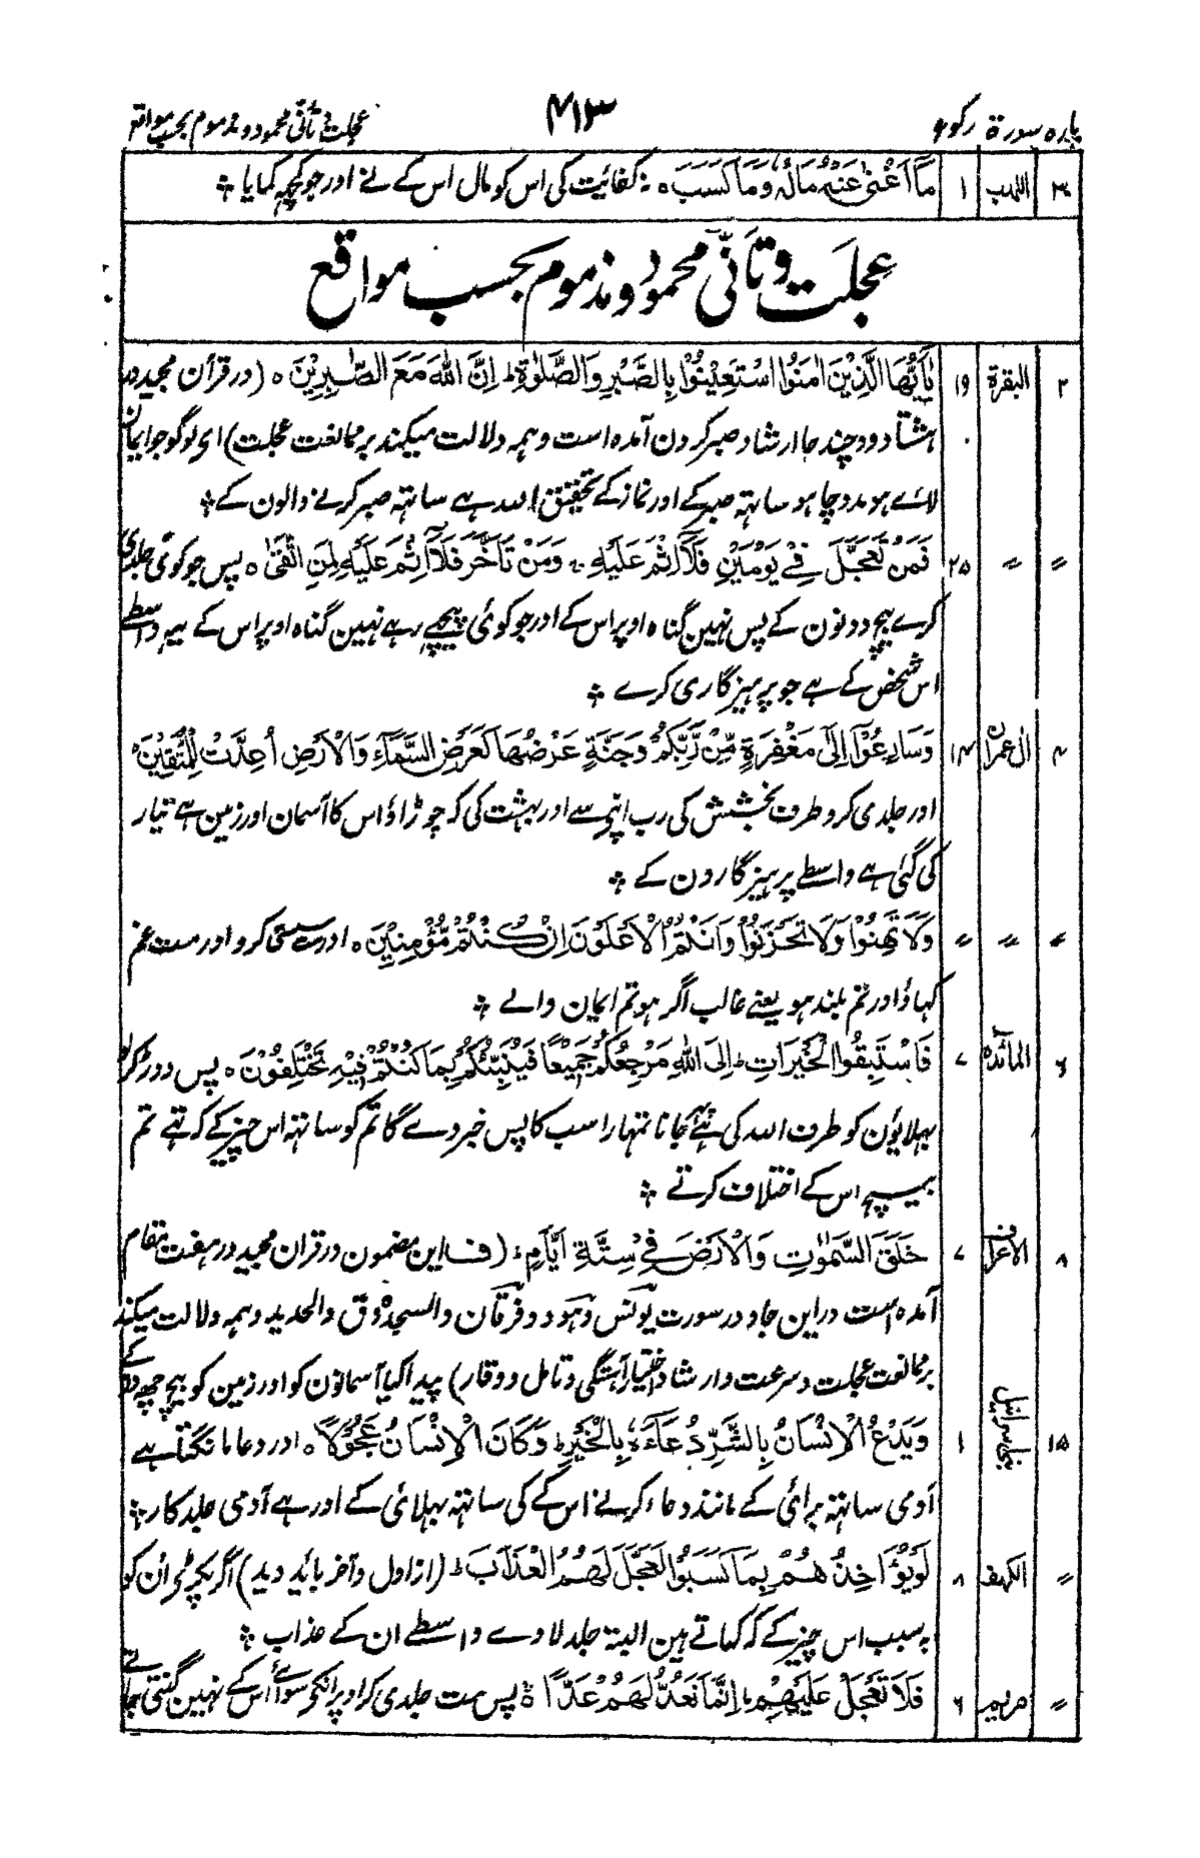 پارہ سورۃ رکوع ۴۱۳ عجلت و تأنّی محمود و مذموم بحسب مواقع
۳۰ اللہب ۱ مَآ اَغْنٰی عَنْهُ مَالُهٗ وَمَا كَسَبَ ہ نہ کفائیت کی اس کو مال اس کے نے اور جو کچہہ کمایا ؞
عجلت و تأنّی محمود و مذموم بحسب مواقع
۲ البقرۃ ۱۹ یٰۤاَیُّهَا الَّذِیْنَ اٰمَنُوا اسْتَعِیْنُوْا بِالصَّبْرِ وَالصَّلٰوةِ ط اِنَّ اللّٰهَ مَعَ الصّٰبِرِیْنَ ہ (در قرآن مجید در
ہشتاد و دو چند جا ارشاد صبر کردن آمدہ است و ہمہ دلالت میکند بر ممانعت عجلت) ای لوگو جو ایمان
لائے ہو مدد چاہو ساتہہ صبر کے اور نماز کے تحقیق اللہ ہے ساتہہ صبر کرنے والون کے ؞
〃 〃 ۲۵ فَمَنْ تَعَجَّلَ فِیْ یَوْمَیْنِ فَلَآ اِثْمَ عَلَیْهِ ج وَمَنْ تَاَخَّرَ فَلَآ اِثْمَ عَلَیْهِ لِمَنِ اتَّقٰی ہ پس جو کوئی جلدی
کرے بیچ دو نون کے پس نہین گناہ اوپر اس کے اور جو کوئی پیچھے رہے نہین گناہ اوپر اس کے یہہ واسطے
اس شخص کے ہے جو پرہیزگاری کرے ؞
۴ اٰل عمران ۱۴ وَسَارِعُوْٓا اِلٰی مَغْفِرَةٍ مِّنْ رَّبِّكُمْ وَجَنَّةٍ عَرْضُهَا كَعَرْضِ السَّمَآءِ وَالْاَرْضِ اُعِدَّتْ لِلْمُتَّقِیْنَ ہ
اور جلدی کرو طرف بخشش کی رب اپنے سے اور بہشت کی کہ چوڑاؤ اس کا آسمان اور زمین ہے تیار
کی گئی ہے واسطے پرہیزگارون کے ؞
〃 〃 〃 وَلَا تَهِنُوْا وَلَا تَحْزَنُوْا وَاَنْتُمُ الْاَعْلَوْنَ اِنْ كُنْتُمْ مُّؤْمِنِیْنَ ہ اور مت سستی کرو اور مت غم
کہاؤ اور تم بلند ہو یعنے غالب اگر ہو تم ایمان والے ؞
۶ المائدہ ۷ فَاسْتَبِقُوا الْخَیْرَاتِ ط اِلَی اللّٰهِ مَرْجِعُكُمْ جَمِیْعًا فَیُنَبِّئُكُمْ بِمَا كُنْتُمْ فِیْهِ تَخْتَلِفُوْنَ ہ پس دوڑ کر لو
بہلائیون کو طرف اللہ کی ہے پھر جانا تمہارا سب کا پس خبر دے گا تم کو ساتہہ اس چیز کے کہ تہے تم
بیچ اس کے اختلاف کرتے ؞
۸ الاعراف ۷ خَلَقَ السَّمٰوٰتِ وَالْاَرْضَ فِیْ سِتَّةِ اَیَّامٍ (ف این مضمون در قران مجید در ہفت مقام
آمدہ است در این جا و در سورت یونس و ہود و فرقان و السجدہ و ق و الحدید و ہمہ دلالت میکند
بر ممانعت عجلت و سرعت و ارشاد اختیار آہستگی و تامل و وقار) پیدا کیا آسمانون کو اور زمین کو بیچ چھہ دن کے
۱۵ بنی اسرائیل ۱ وَیَدْعُ الْاِنْسَانُ بِالشَّرِّ دُعَآءَهٗ بِالْخَیْرِ ط وَكَانَ الْاِنْسَانُ عَجُوْلًا ہ اور دعا مانگتا ہے
آدمی ساتہہ برائی کے مانند دعاء کرنے اس کے کی ساتہہ بہلائی کے اور ہے آدمی جلد کار ؞
〃 الکہف ۸ لَوْ یُؤَاخِذُهُمْ بِمَا كَسَبُوْا لَعَجَّلَ لَهُمُ الْعَذَابَ ط (از اول و آخر بائد دید) اگر پکڑے ان کو
بہ سبب اس چیز کے کہ کماتے ہین البتہ جلد لاوے واسطے ان کے عذاب ؞
〃 مریم ۶ فَلَا تَعْجَلْ عَلَیْهِمْ ط اِنَّمَا نَعُدُّ لَهُمْ عَدًّا ہ پس مت جلدی کر اوپر انکی سوائے اس کے نہین گنتی جاتے